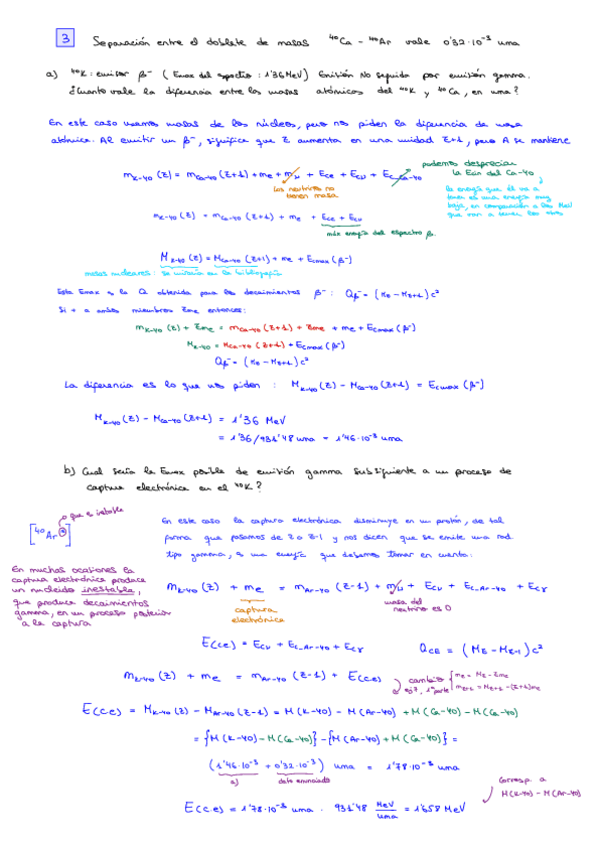 3 Separación entre el doblete de masas ⁴⁰Ca - ⁴⁰Ar vale 0'32·10⁻³ uma
a) ⁴⁰K: emisor β⁻ (Emax del espectro: 1'36 MeV) Emisión No seguida por emisión gamma.
¿Cuánto vale la diferencia entre las masas atómicas del ⁴⁰K y ⁴⁰Ca, en uma?
En este caso usamos masas de los núcleos, pero nos piden la diferencia de masa
atómica. Al emitir un β⁻, significa que Z aumenta en una unidad Z+1, pero A se mantiene
podemos despreciar
la Ecin del Ca-40
m_K-40 (Z) = m_Ca-40 (Z+1) + me + mν + Ece + Ecν + Ec_Ca-40
los neutrinos no
tienen masa
la energía que él va a
tener es una energía muy
baja, en comparación a los MeV
que van a tener los otros
m_K-40 (Z) = m_Ca-40 (Z+1) + me + Ece + Ecν
máx energía del espectro β.
M_K-40 (Z) = M_Ca-40 (Z+1) + me + Ecmax (β⁻)
masas nucleares: se miraría en la bibliografía
Esta Emax es la Q obtenida para los decaimientos β⁻: Qβ⁻ = (Mz - Mz+1) c²
Si + a ambos miembros Zme entonces:
m_K-40 (Z) + Zme = m_Ca-40 (Z+1) + Zme + me + Ecmax (β⁻)
M_K-40 = M_Ca-40 (Z+1) + Ecmax (β⁻)
Qβ⁻ = (Mz - Mz+1) c²
La diferencia es lo que nos piden: M_K-40 (Z) - M_Ca-40 (Z+1) = Ecmax (β⁻)
M_K-40 (Z) - M_Ca-40 (Z+1) = 1'36 MeV
= 1'36/931'48 uma = 1'46·10⁻³ uma
b) Cual sería la Emax posible de emisión gamma subsiguiente a un proceso de
captura electrónica en el ⁴⁰K?
que es inestable
[⁴⁰Ar*]
En este caso la captura electrónica disminuye en un protón, de tal
forma que pasamos de Z a Z-1 y nos dicen que se emite una rad.
tipo gamma, es una energía que debemos tomar en cuenta:
En muchas ocasiones la
captura electrónica produce
un nucleido inestable,
que produce decaimientos
gamma, en un proceso posterior
a la captura
m_K-40 (Z) + me = m_Ar-40 (Z-1) + mν + Ecν + Ec_Ar-40 + Ecγ
captura
electrónica
masa del
neutrino es 0
E(ce) = Ecν + Ec_Ar-40 + Ecγ
Q_CE = (Mz - Mz-1) c²
m_K-40 (Z) + me = m_Ar-40 (Z-1) + E(ce)
E(ce) = M_K-40 (Z) - M_Ar-40 (Z-1) = M(K-40) - M(Ar-40) + M(Ca-40) - M(Ca-40)
= {M(K-40) - M(Ca-40)} - {M(Ar-40) + M(Ca-40)} =
(1'46·10⁻³ + 0'32·10⁻³) uma = 1'78·10⁻³ uma
a) dato enunciado
Corresp. a
M(K-40) - M(Ar-40)
E(c.e) = 1'78·10⁻³ uma · 931'48 MeV/uma = 1'658 MeV